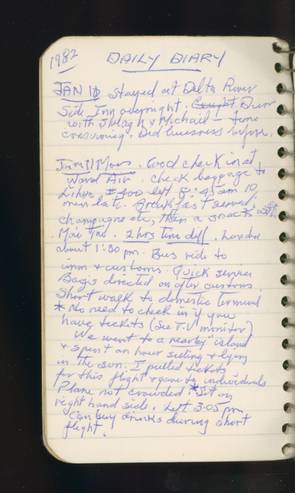 1982 DAILY DIARY
JAN 10 Stayed at Delta River
Side Inn overnight. Dinner
with & Michael - time
consuming. Did business before.
Jan 11 Mon. Good check in at
Ward Air. check baggage to
Lihue, # 400 left 8:45 am 10
min late. Breakfast served,
champagne etc, then a snack with
Mai Tai. 2 hrs time diff. Landed
about 1:30 pm. Bus ride to
imm & customs. Quick service
Bags directed on after customs.
Short walk to domestic terminal
* No need to check in if you
have tickets (see T.V. monitor)
We went to a nearby island
& spent an hour sitting & lying
in the sun. I pulled tickets
for this flight & gave to individuals
Plane not crowded. * Sit on
right hand side. Left 3:05 pm
Can buy drinks during short
flight.